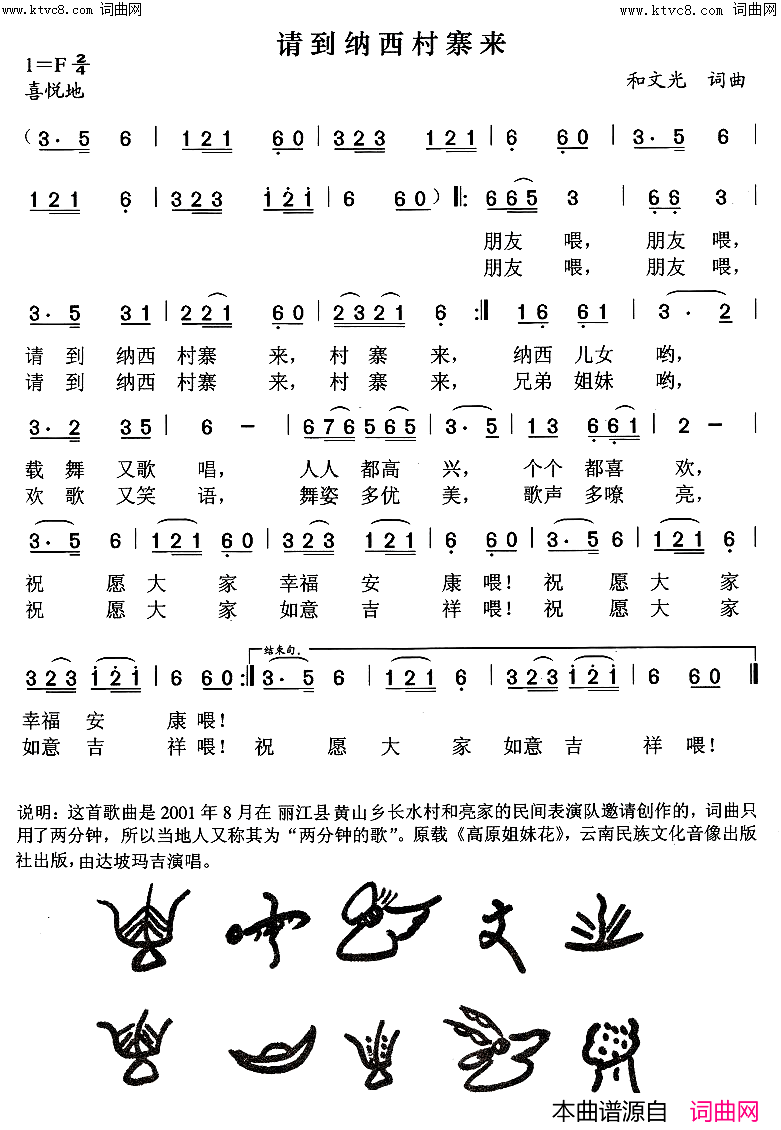 www.ktvc8.com 词曲网 www.ktvc8.com 词曲网
请到纳西村寨来
1=F 2/4
喜悦地
和文光 词曲
(3· 5 6 | 1 2 1 6 0 | 3 2 3 1 2 1 | 6 6 0 | 3· 5 6 |
1 2 1 6 | 3 2 3 1 2 1 | 6 6 0) ‖: 6 6 5 3 | 6 6 3 |
朋友 喂, 朋友 喂,
朋友 喂, 朋友 喂,
3· 5 3 1 | 2 2 1 6 0 | 2 3 2 1 6 :‖ 1 6 6 1 | 3 · 2 |
请 到 纳西 村寨 来, 村 寨 来, 纳西 儿女 哟,
请 到 纳西 村寨 来, 村 寨 来, 兄弟 姐妹 哟,
3· 2 3 5 | 6 − | 6 7 6 5 6 5 | 3· 5 | 1 3 6 6 1 | 2 − |
载 舞 又歌 唱, 人人 都高 兴, 个个 都喜 欢,
欢 歌 又笑 语, 舞姿 多优 美, 歌声 多嘹 亮,
3· 5 6 | 1 2 1 6 0 | 3 2 3 1 2 1 | 6 6 0 | 3· 5 6 | 1 2 1 6 |
祝 愿 大 家 幸福 安 康 喂! 祝 愿 大 家
祝 愿 大 家 如意 吉 祥 喂! 祝 愿 大 家
结束句.
3 2 3 1 2 1 | 6 6 0 :‖ 3· 5 6 | 1 2 1 6 | 3 2 3 1 2 1 | 6 6 0 ‖
幸福 安 康 喂!
如意 吉 祥 喂! 祝 愿 大 家 如意 吉 祥 喂!
说明:这首歌曲是 2001 年 8 月在 丽江县 黄山乡长水村和亮家的民间表演队邀请创作的,词曲只
用了两分钟,所以当地人又称其为“两分钟的歌”。原载《高原姐妹花》,云南民族文化音像出版
社出版,由达坡玛吉演唱。
本曲谱源自 词曲网